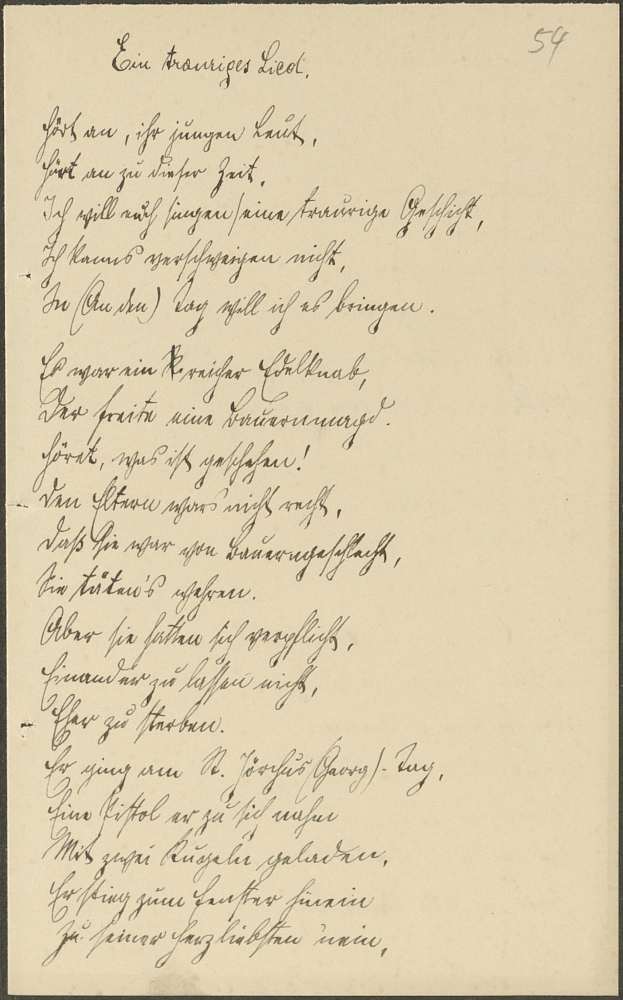 54
Ein trauriges Lied.
Hört an, ihr jungen Leut,
Hört an zu dieser Zeit,
Ich will euch singen eine traurige Geschicht,
Ich kanns verschweigen nicht,
In (An den) Tag will ich es bringen.
Es war ein reicher Edelknab,
Der freite eine Bauernmagd.
Höret, was ist geschehen!
Den Eltern wars nicht recht,
Daß sie war von Bauerngeschlecht,
Sie täten's wehren.
Aber sie hatten sich verpflicht,
Einander zu lassen nicht,
Eher zu sterben.
Er ging am St. Jörchus (Georg)-Tag,
Eine Pistol er zu sich nahm
Mit zwei Kugeln geladen,
Er stieg zum Fenster hinein
Zu seiner Herzliebsten 'nein,